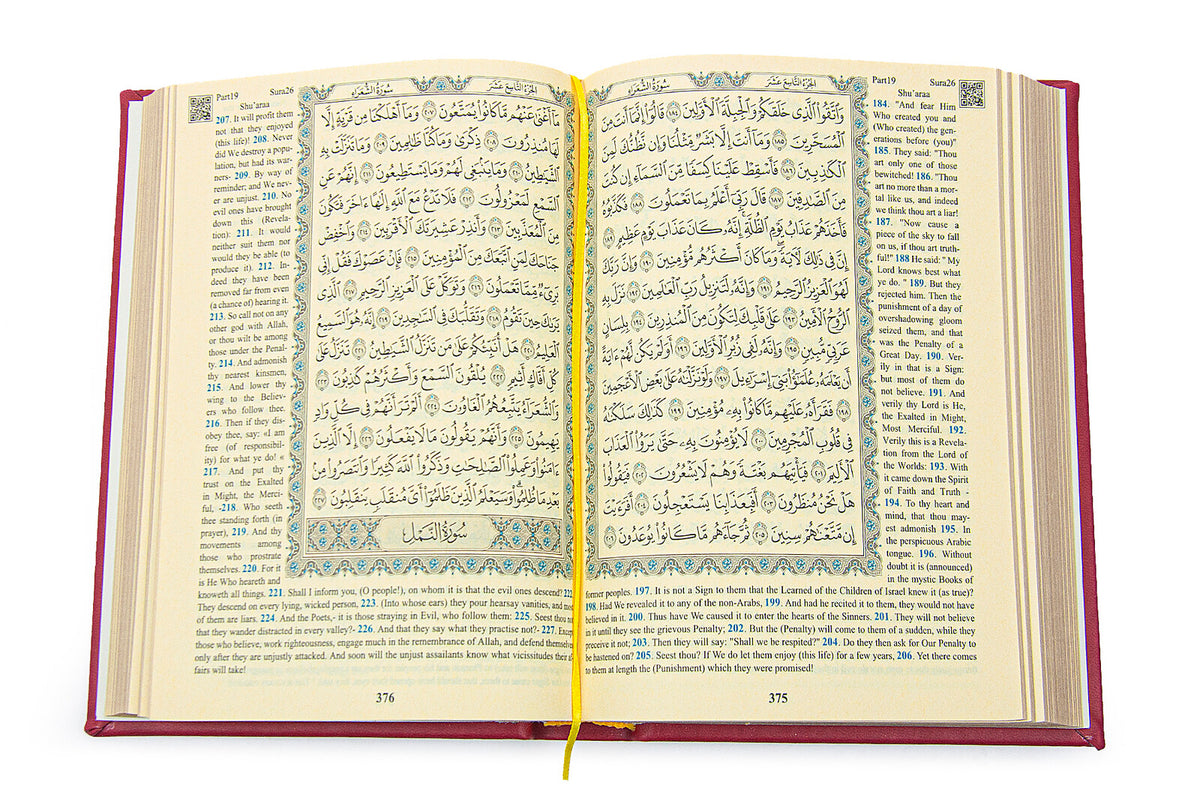 Part19 Sura26
Shu'araa
الجزء التاسع عشر سورة الشعراء
وَاتَّقُوا الَّذِي خَلَقَكُمْ وَالْجِبِلَّةَ الْأَوَّلِينَ ١٨٤ قَالُوا إِنَّمَا أَنتَ مِنَ
الْمُسَحَّرِينَ ١٨٥ وَمَا أَنتَ إِلَّا بَشَرٌ مِّثْلُنَا وَإِن نَّظُنُّكَ لَمِنَ
الْكَاذِبِينَ ١٨٦ فَأَسْقِطْ عَلَيْنَا كِسَفًا مِّنَ السَّمَاءِ إِن كُنتَ
مِنَ الصَّادِقِينَ ١٨٧ قَالَ رَبِّي أَعْلَمُ بِمَا تَعْمَلُونَ ١٨٨ فَكَذَّبُوهُ
فَأَخَذَهُمْ عَذَابُ يَوْمِ الظُّلَّةِ إِنَّهُ كَانَ عَذَابَ يَوْمٍ عَظِيمٍ ١٨٩
إِنَّ فِي ذَٰلِكَ لَآيَةً وَمَا كَانَ أَكْثَرُهُم مُّؤْمِنِينَ ١٩٠ وَإِنَّ رَبَّكَ
لَهُوَ الْعَزِيزُ الرَّحِيمُ ١٩١ وَإِنَّهُ لَتَنزِيلُ رَبِّ الْعَالَمِينَ ١٩٢ نَزَلَ بِهِ
الرُّوحُ الْأَمِينُ ١٩٣ عَلَىٰ قَلْبِكَ لِتَكُونَ مِنَ الْمُنذِرِينَ ١٩٤ بِلِسَانٍ
عَرَبِيٍّ مُّبِينٍ ١٩٥ وَإِنَّهُ لَفِي زُبُرِ الْأَوَّلِينَ ١٩٦ أَوَلَمْ يَكُن لَّهُمْ آيَةً
أَن يَعْلَمَهُ عُلَمَاءُ بَنِي إِسْرَائِيلَ ١٩٧ وَلَوْ نَزَّلْنَاهُ عَلَىٰ بَعْضِ الْأَعْجَمِينَ
١٩٨ فَقَرَأَهُ عَلَيْهِم مَّا كَانُوا بِهِ مُؤْمِنِينَ ١٩٩ كَذَٰلِكَ سَلَكْنَاهُ
فِي قُلُوبِ الْمُجْرِمِينَ ٢٠٠ لَا يُؤْمِنُونَ بِهِ حَتَّىٰ يَرَوُا الْعَذَابَ
الْأَلِيمَ ٢٠١ فَيَأْتِيَهُم بَغْتَةً وَهُمْ لَا يَشْعُرُونَ ٢٠٢ فَيَقُولُوا
هَلْ نَحْنُ مُنظَرُونَ ٢٠٣ أَفَبِعَذَابِنَا يَسْتَعْجِلُونَ ٢٠٤ أَفَرَأَيْتَ
إِن مَّتَّعْنَاهُمْ سِنِينَ ٢٠٥ ثُمَّ جَاءَهُم مَّا كَانُوا يُوعَدُونَ ٢٠٦
184. "And fear Him
Who created you and
(Who created) the gen-
erations before (you)"
185. They said: "Thou
art only one of those
bewitched! 186. "Thou
art no more than a mor-
tal like us, and indeed
we think thou art a liar!
187. "Now cause a
piece of the sky to fall
on us, if thou art truth-
ful!" 188 He said: " My
Lord knows best what
ye do. " 189. But they
rejected him. Then the
punishment of a day of
overshadowing gloom
seized them, and that
was the Penalty of a
Great Day. 190. Ver-
ily in that is a Sign:
but most of them do
not believe. 191. And
verily thy Lord is He,
the Exalted in Might,
Most Merciful. 192.
Verily this is a Revela-
tion from the Lord of
the Worlds: 193. With
it came down the Spirit
of Faith and Truth -
194. To thy heart and
mind, that thou may-
est admonish 195. In
the perspicuous Arabic
tongue. 196. Without
doubt it is (announced)
in the mystic Books of
former peoples. 197. It is not a Sign to them that the Learned of the Children of Israel knew it (as true)?
198. Had We revealed it to any of the non-Arabs, 199. And had he recited it to them, they would not have
believed in it. 200. Thus have We caused it to enter the hearts of the Sinners. 201. They will not believe
in it until they see the grievous Penalty; 202. But the (Penalty) will come to them of a sudden, while they
perceive it not; 203. Then they will say: "Shall we be respited?" 204. Do they then ask for Our Penalty to
be hastened on? 205. Seest thou? If We do let them enjoy (this life) for a few years, 206. Yet there comes
to them at length the (Punishment) which they were promised!
375
Part19 Sura26
Shu'araa
الجزء التاسع عشر سورة الشعراء
مَا أَغْنَىٰ عَنْهُم مَّا كَانُوا يُمَتَّعُونَ ٢٠٧ وَمَا أَهْلَكْنَا مِن قَرْيَةٍ إِلَّا
لَهَا مُنذِرُونَ ٢٠٨ ذِكْرَىٰ وَمَا كُنَّا ظَالِمِينَ ٢٠٩ وَمَا تَنَزَّلَتْ بِهِ
الشَّيَاطِينُ ٢١٠ وَمَا يَنبَغِي لَهُمْ وَمَا يَسْتَطِيعُونَ ٢١١ إِنَّهُمْ عَنِ
السَّمْعِ لَمَعْزُولُونَ ٢١٢ فَلَا تَدْعُ مَعَ اللَّهِ إِلَٰهًا آخَرَ فَتَكُونَ
مِنَ الْمُعَذَّبِينَ ٢١٣ وَأَنذِرْ عَشِيرَتَكَ الْأَقْرَبِينَ ٢١٤ وَاخْفِضْ
جَنَاحَكَ لِمَنِ اتَّبَعَكَ مِنَ الْمُؤْمِنِينَ ٢١٥ فَإِنْ عَصَوْكَ فَقُلْ إِنِّي
بَرِيءٌ مِّمَّا تَعْمَلُونَ ٢١٦ وَتَوَكَّلْ عَلَى الْعَزِيزِ الرَّحِيمِ ٢١٧ الَّذِي
يَرَاكَ حِينَ تَقُومُ ٢١٨ وَتَقَلُّبَكَ فِي السَّاجِدِينَ ٢١٩ إِنَّهُ هُوَ السَّمِيعُ
الْعَلِيمُ ٢٢٠ هَلْ أُنَبِّئُكُمْ عَلَىٰ مَن تَنَزَّلُ الشَّيَاطِينُ ٢٢١ تَنَزَّلُ عَلَىٰ
كُلِّ أَفَّاكٍ أَثِيمٍ ٢٢٢ يُلْقُونَ السَّمْعَ وَأَكْثَرُهُمْ كَاذِبُونَ ٢٢٣
وَالشُّعَرَاءُ يَتَّبِعُهُمُ الْغَاوُونَ ٢٢٤ أَلَمْ تَرَ أَنَّهُمْ فِي كُلِّ وَادٍ
يَهِيمُونَ ٢٢٥ وَأَنَّهُمْ يَقُولُونَ مَا لَا يَفْعَلُونَ ٢٢٦ إِلَّا الَّذِينَ
آمَنُوا وَعَمِلُوا الصَّالِحَاتِ وَذَكَرُوا اللَّهَ كَثِيرًا وَانتَصَرُوا مِن
بَعْدِ مَا ظُلِمُوا وَسَيَعْلَمُ الَّذِينَ ظَلَمُوا أَيَّ مُنقَلَبٍ يَنقَلِبُونَ ٢٢٧
سُورَةُ النَّمْلِ
207. It will profit them
not that they enjoyed
(this life)! 208. Never
did We destroy a popu-
lation, but had its war-
ners- 209. By way of
reminder; and We nev-
er are unjust. 210. No
evil ones have brought
down this (Revela-
tion): 211. It would
neither suit them nor
would they be able (to
produce it). 212. In-
deed they have been
removed far from even
(a chance of) hearing it.
213. So call not on any
other god with Allah,
or thou wilt be among
those under the Penal-
ty. 214. And admonish
thy nearest kinsmen,
215. And lower thy
wing to the Believ-
ers who follow thee.
216. Then if they dis-
obey thee, say: «I am
free (of responsibil-
ity) for what ye do! «
217. And put thy
trust on the Exalted
in Might, the Merci-
ful, -218. Who seeth
thee standing forth (in
prayer), 219. And thy
movements among
those who prostrate
themselves. 220. For it
is He Who heareth and
knoweth all things. 221. Shall I inform you, (O people!), on whom it is that the evil ones descend? 222.
They descend on every lying, wicked person, 223. (Into whose ears) they pour hearsay vanities, and most
of them are liars. 224. And the Poets,- it is those straying in Evil, who follow them: 225. Seest thou not
that they wander distracted in every valley?- 226. And that they say what they practise not?- 227. Except
those who believe, work righteousness, engage much in the remembrance of Allah, and defend themselves
only after they are unjustly attacked. And soon will the unjust assailants know what vicissitudes their
fairs will take!
376